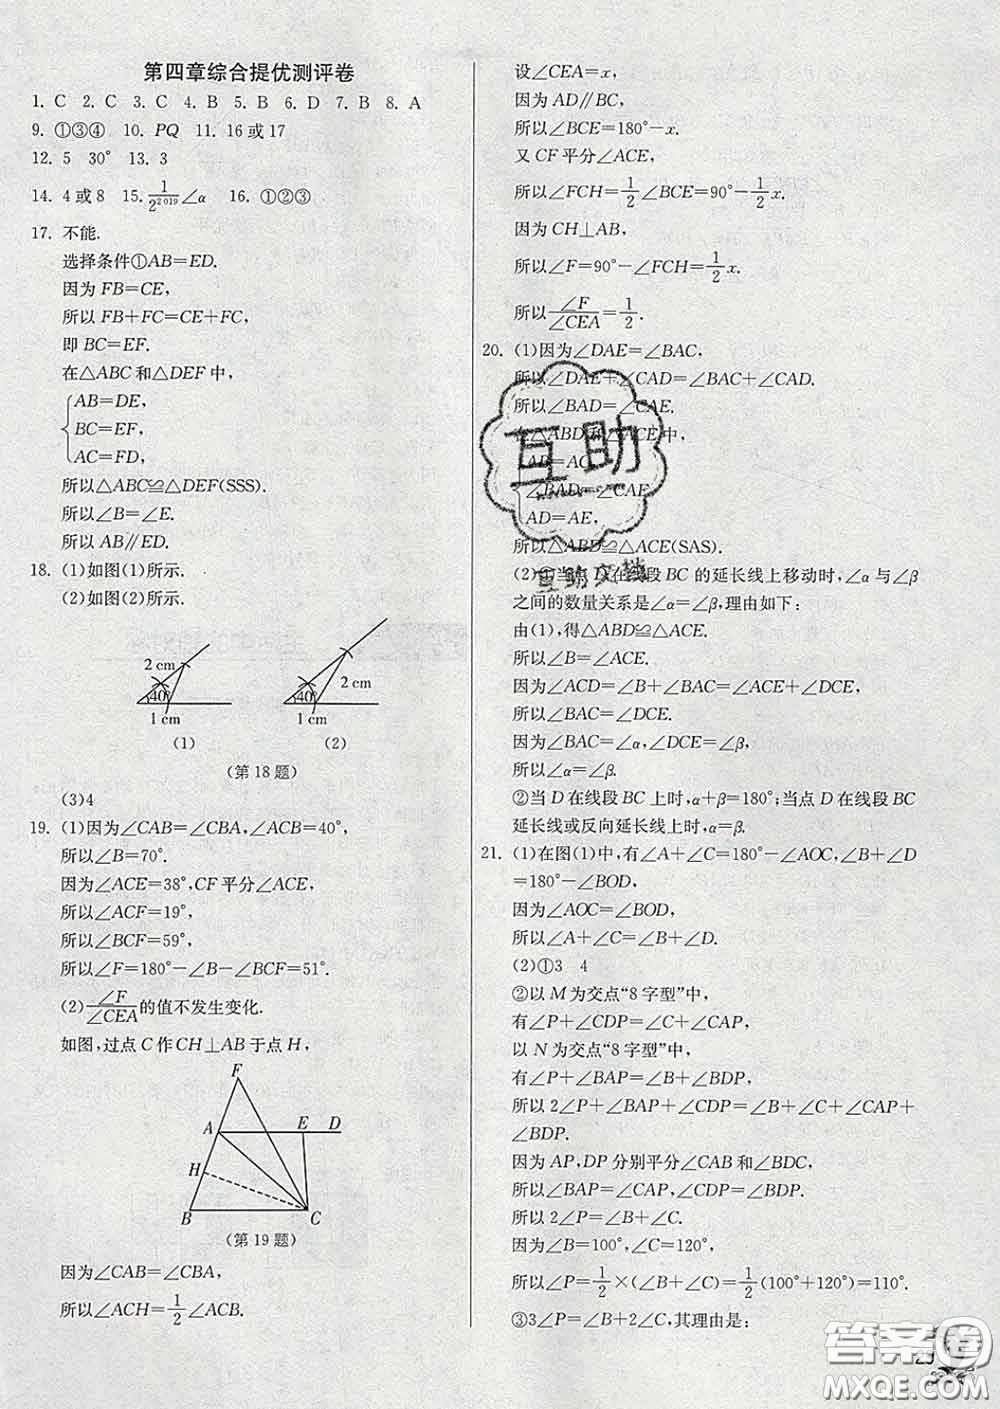 第四章综合提优测评卷
1. C 2. C 3. C 4. B 5. B 6. D 7. B 8. A
9. ①③④ 10. PQ 11. 16或17
12. 5 30° 13. 3
14. 4或8 15. 1/2^2 019 ∠α 16. ①②③
17. 不能.
选择条件①AB=ED.
因为FB=CE,
所以FB+FC=CE+FC,
即BC=EF.
在△ABC和△DEF中,
AB=DE,
BC=EF,
AC=FD,
所以△ABC≌△DEF(SSS).
所以∠B=∠E.
所以AB∥ED.
18. (1)如图(1)所示.
(2)如图(2)所示.
2 cm
40°
1 cm
(1)
2 cm
40°
1 cm
(2)
(第18题)
(3)4
19. (1)因为∠CAB=∠CBA,∠ACB=40°,
所以∠B=70°.
因为∠ACE=38°,CF平分∠ACE,
所以∠ACF=19°,
所以∠BCF=59°,
所以∠F=180°-∠B-∠BCF=51°.
(2)∠F/∠CEA的值不发生变化.
如图,过点C作CH⊥AB于点H,
F
A E D
H
B C
(第19题)
因为∠CAB=∠CBA,
所以∠ACH=1/2∠ACB.
设∠CEA=x,
因为AD∥BC,
所以∠BCE=180°-x.
又CF平分∠ACE,
所以∠FCH=1/2∠BCE=90°-1/2x.
因为CH⊥AB,
所以∠F=90°-∠FCH=1/2x.
所以∠F/∠CEA=1/2.
20. (1)因为∠DAE=∠BAC,
所以∠DAE+∠CAD=∠BAC+∠CAD.
所以∠BAD=∠CAE.
在△ABD和△ACE中,
AB=AC,
∠BAD=∠CAE,
AD=AE,
所以△ABD≌△ACE(SAS).
(2)①当点D在线段BC的延长线上移动时,∠α与∠β
之间的数量关系是∠α=∠β,理由如下:
由(1),得△ABD≌△ACE.
所以∠B=∠ACE.
因为∠ACD=∠B+∠BAC=∠ACE+∠DCE,
所以∠BAC=∠DCE.
因为∠BAC=∠α,∠DCE=∠β,
所以∠α=∠β.
②当D在线段BC上时,α+β=180°;当点D在线段BC
延长线或反向延长线上时,α=β.
21. (1)在图(1)中,有∠A+∠C=180°-∠AOC,∠B+∠D
=180°-∠BOD,
因为∠AOC=∠BOD,
所以∠A+∠C=∠B+∠D.
(2)①3 4
②以M为交点“8字型”中,
有∠P+∠CDP=∠C+∠CAP,
以N为交点“8字型”中,
有∠P+∠BAP=∠B+∠BDP,
所以2∠P+∠BAP+∠CDP=∠B+∠C+∠CAP+
∠BDP.
因为AP,DP分别平分∠CAB和∠BDC,
所以∠BAP=∠CAP,∠CDP=∠BDP,
所以2∠P=∠B+∠C.
因为∠B=100°,∠C=120°,
所以∠P=1/2×(∠B+∠C)=1/2(100°+120°)=110°.
③3∠P=∠B+2∠C,其理由是:
互助
互助文档
答案圈
MXQE.COM